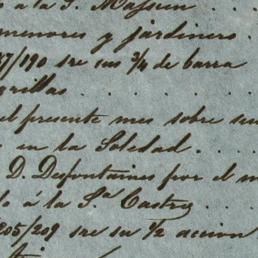 s a la S. Massein . .
menores y jardinero .
57/190 sre sus 3/4 de barra
grillas . . . .
el presente mes sobre su
s en la Soledad . . .
D. Desfontaines por el m
do á la Sª Castro . .
205/209 sre su 1/2 accion